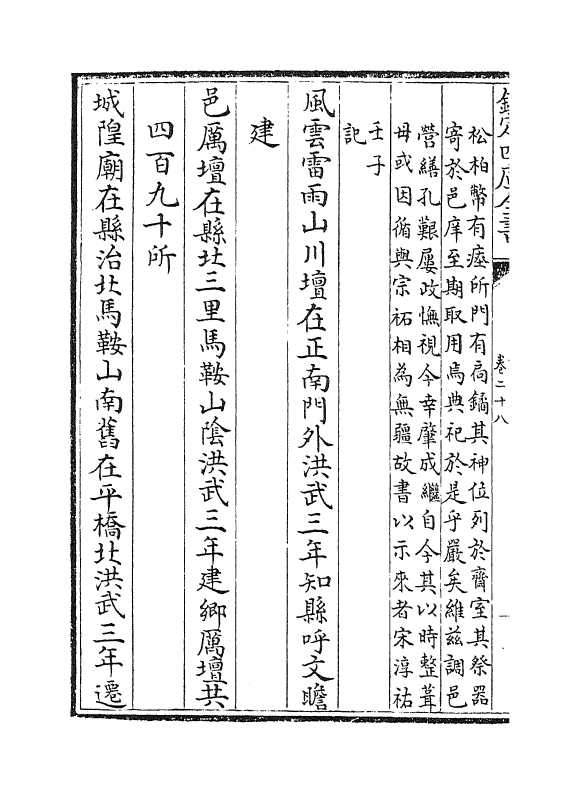 欽定四庫全書
卷二十八
松柏幣有瘞所門有扃鐍其神位列於齋室其祭器
寄於邑庠至期取用焉典祀於是乎嚴矣維茲調邑
營繕孔艱屢政憮視今幸肇成繼自今其以時整葺
毋或因循與宗祏相為無疆故書以示來者宋淳祐
壬子
記
風雲雷雨山川壇在正南門外洪武三年知縣呼文瞻
建
邑厲壇在縣北三里馬鞍山陰洪武三年建鄉厲壇共
四百九十所
城隍廟在縣治北馬鞍山南舊在平橋北洪武三年遷